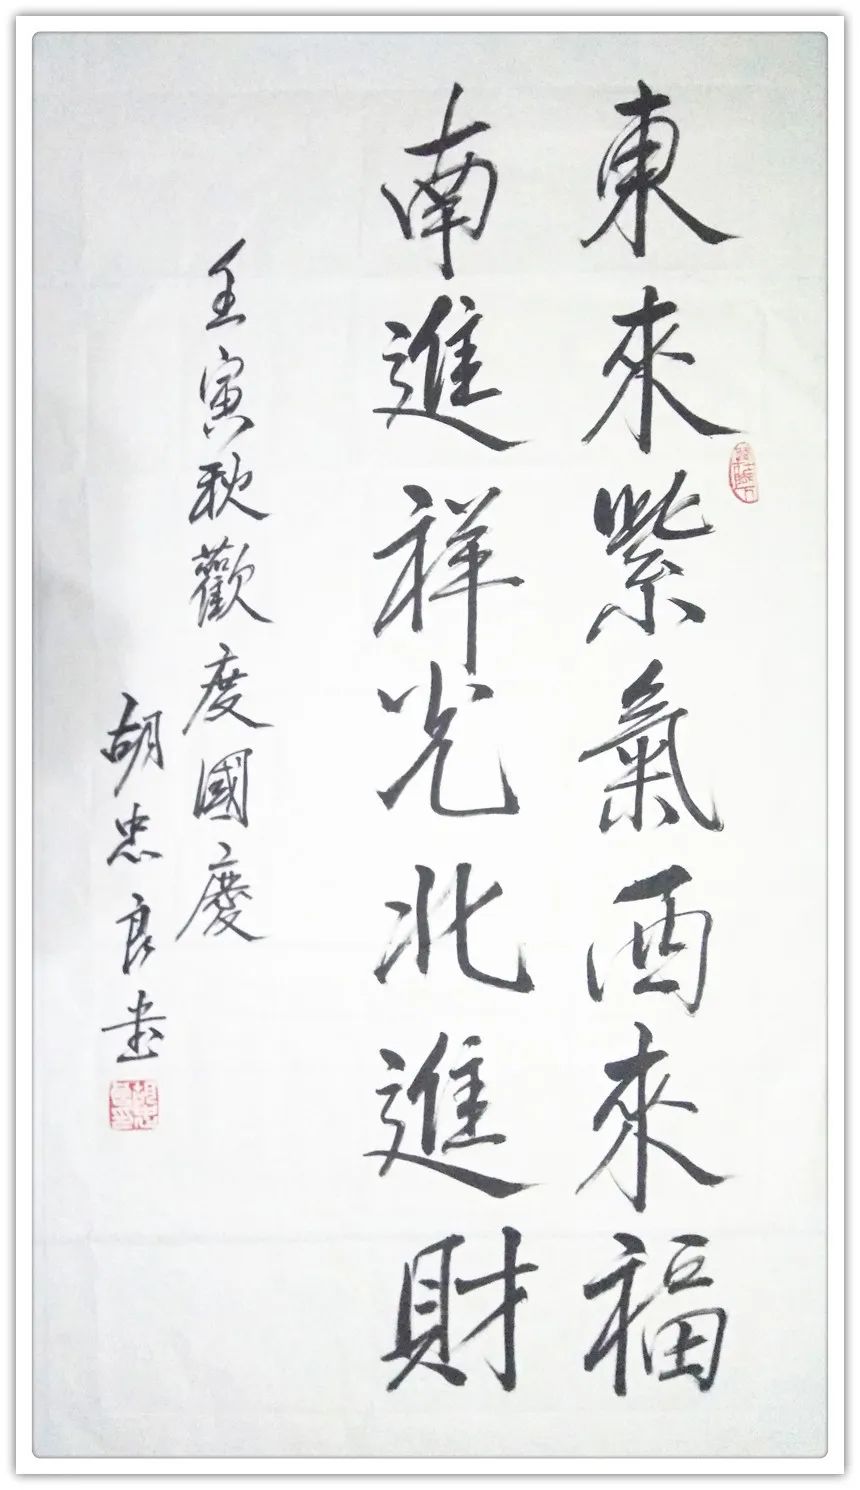 東來紫氣西來福
南進祥光北進財
壬寅秋歡度國慶
胡忠良書